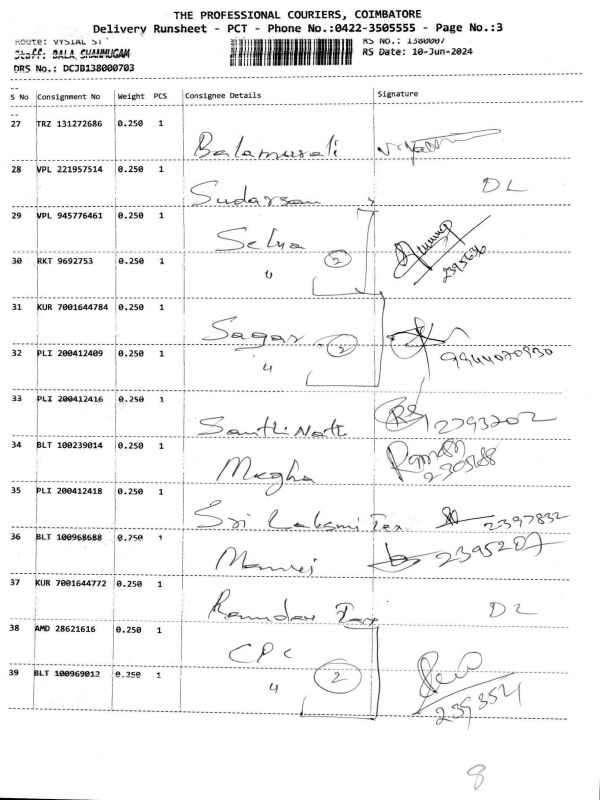 THE PROFESSIONAL COURIERS, COIMBATORE
Delivery Runsheet - PCT - Phone No.:0422-3505555 - Page No.:3
Route: VYSIAL ST RS No.: 1380007
Staff: BALA SHANMUGAM RS Date: 10-Jun-2024
DRS No.: DCJB138000703
S No Consignment No Weight PCS Consignee Details Signature
27 TRZ 131272686 0.250 1 Balamurali
28 VPL 221957514 0.250 1 Sudarsan DL
29 VPL 945776461 0.250 1 Selva
30 RKT 9692753 0.250 1 " 2 2395636
31 KUR 7001644784 0.250 1 Sagar
32 PLI 200412409 0.250 1 " 2 9944020930
33 PLI 200412416 0.250 1 Santhi Nath RS 2393202
34 BLT 100239014 0.250 1 Megha Ramesh
35 PLI 200412418 0.250 1 Sri Laksmi Tex 2397832
36 BLT 100968688 0.250 1 2395207
37 KUR 7001644772 0.250 1 Ramdev Tex DL
38 AMD 28621616 0.250 1 CPC
39 BLT 100969012 0.250 1 " 2
8